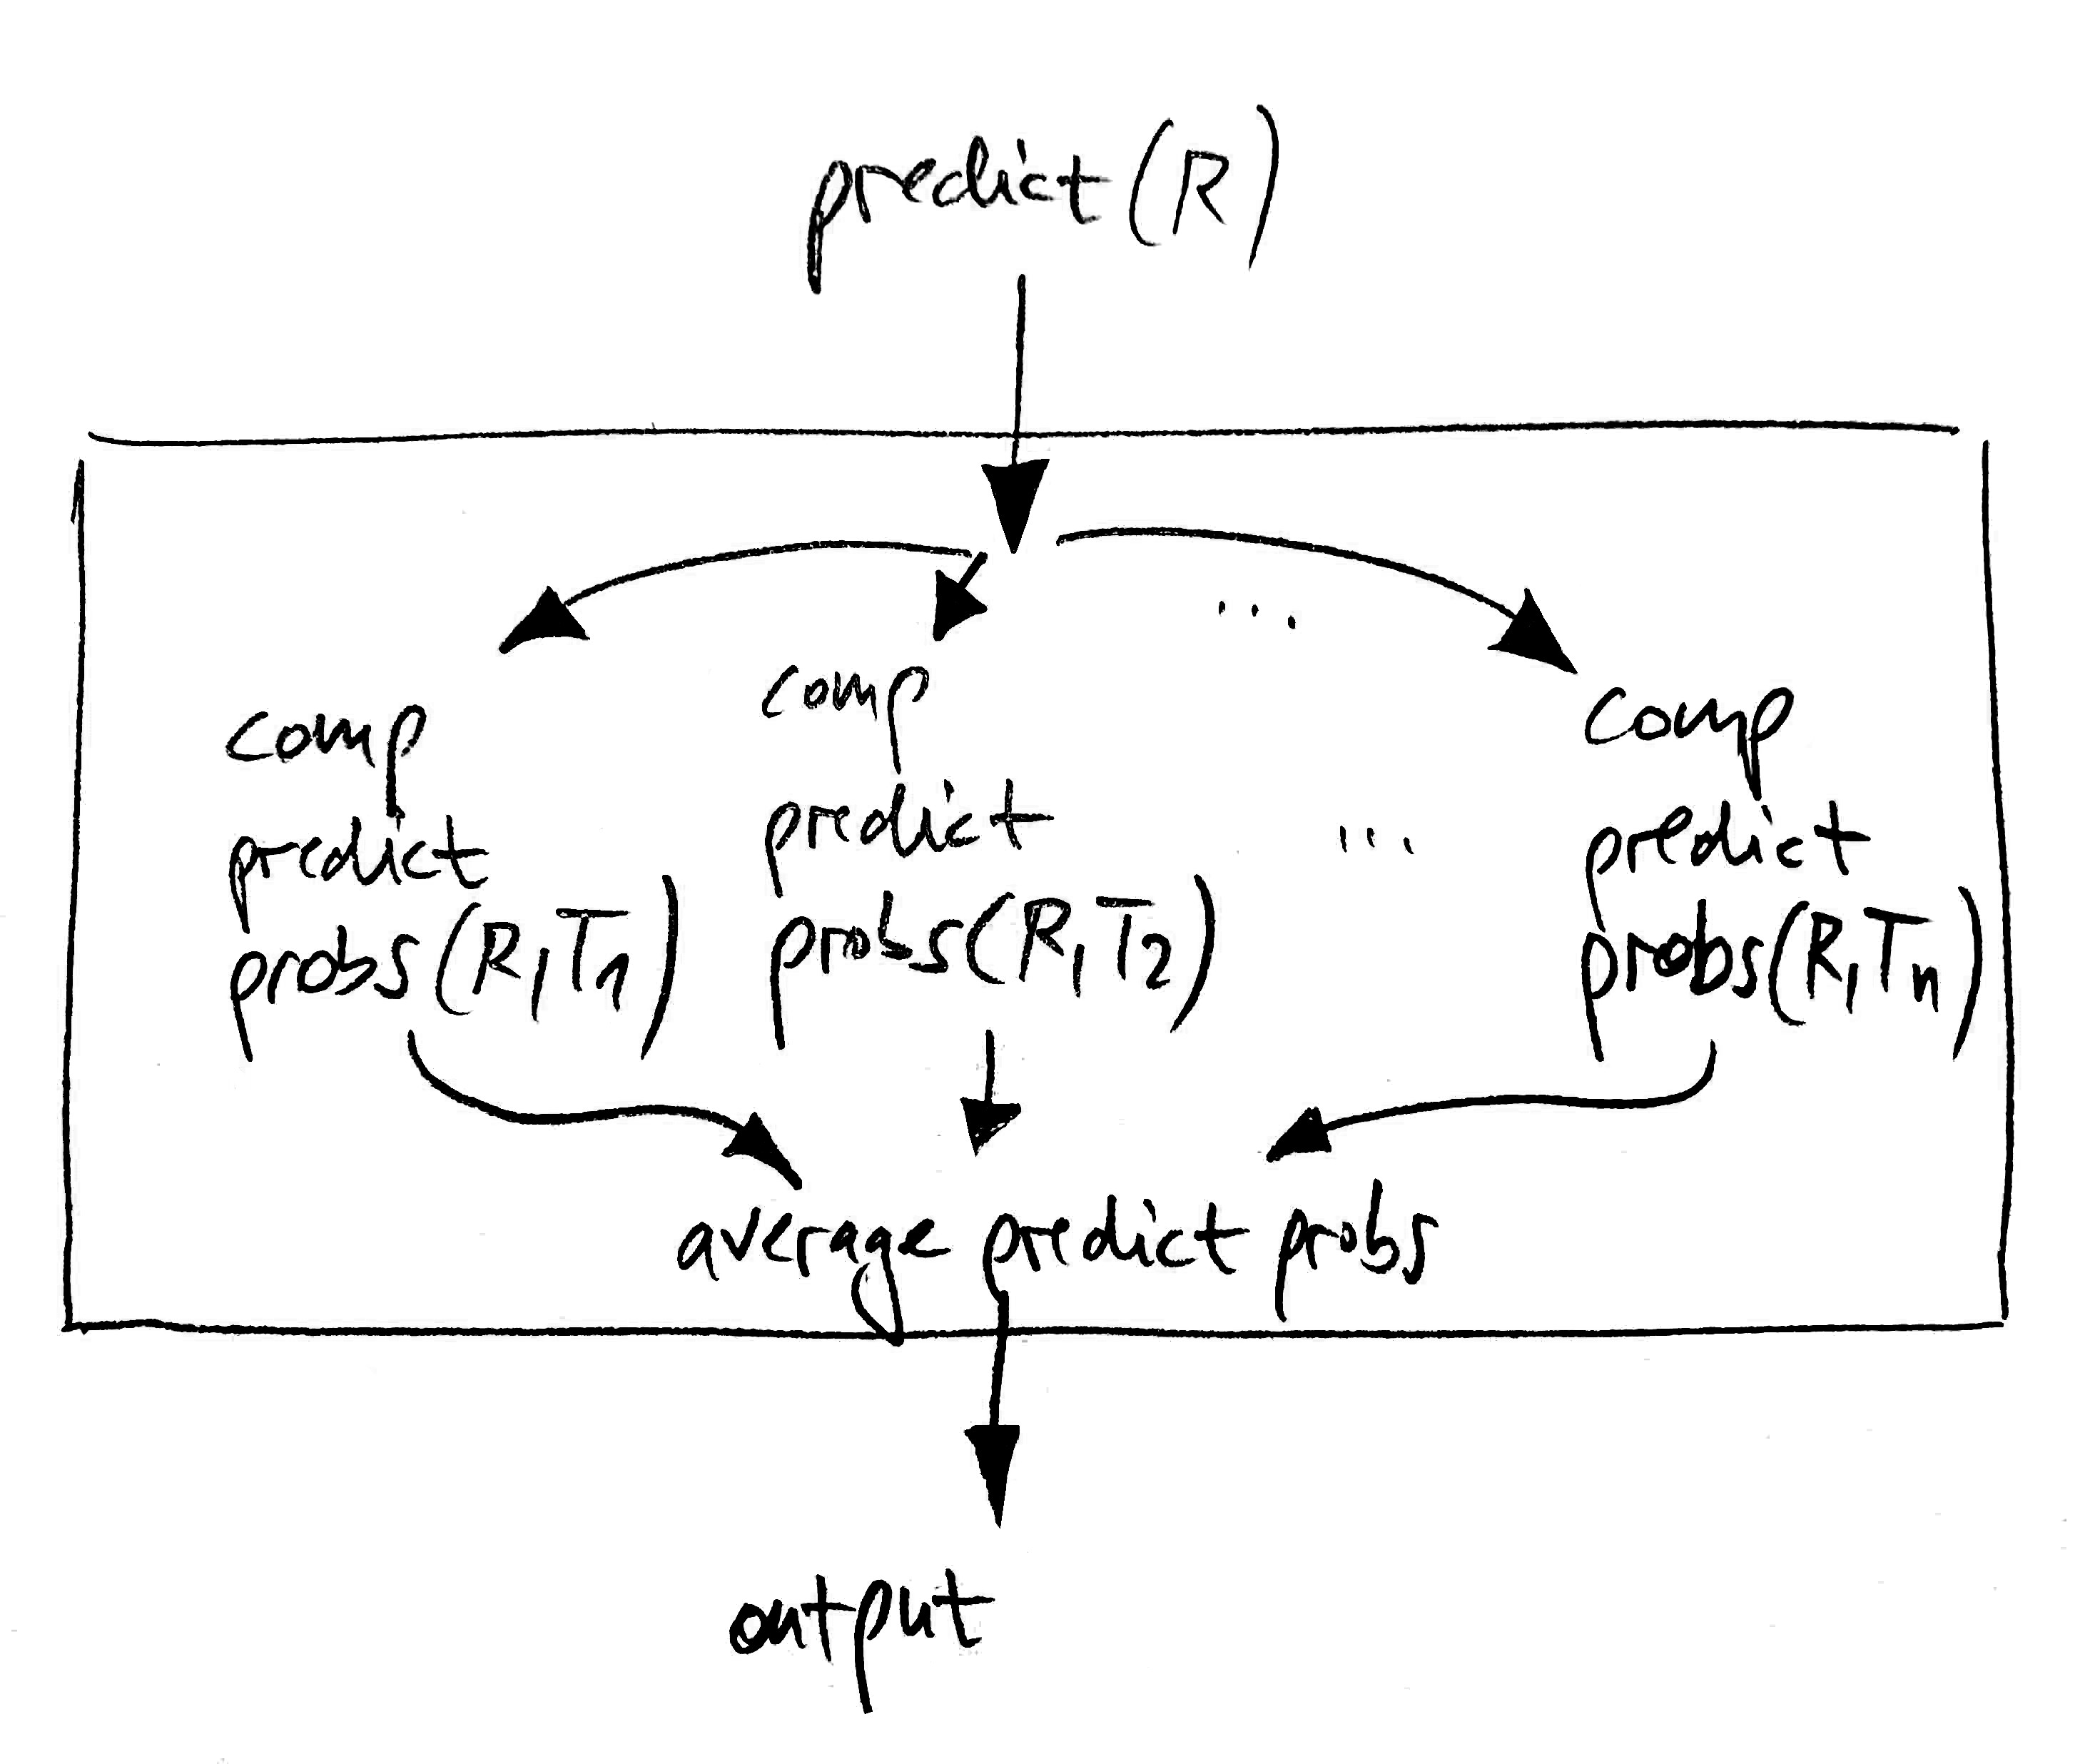 predict(R)
...
comp
predict
probs(R,T1)
comp
predict
probs(R,T2)
...
comp
predict
probs(R,Tn)
average predict probs
output